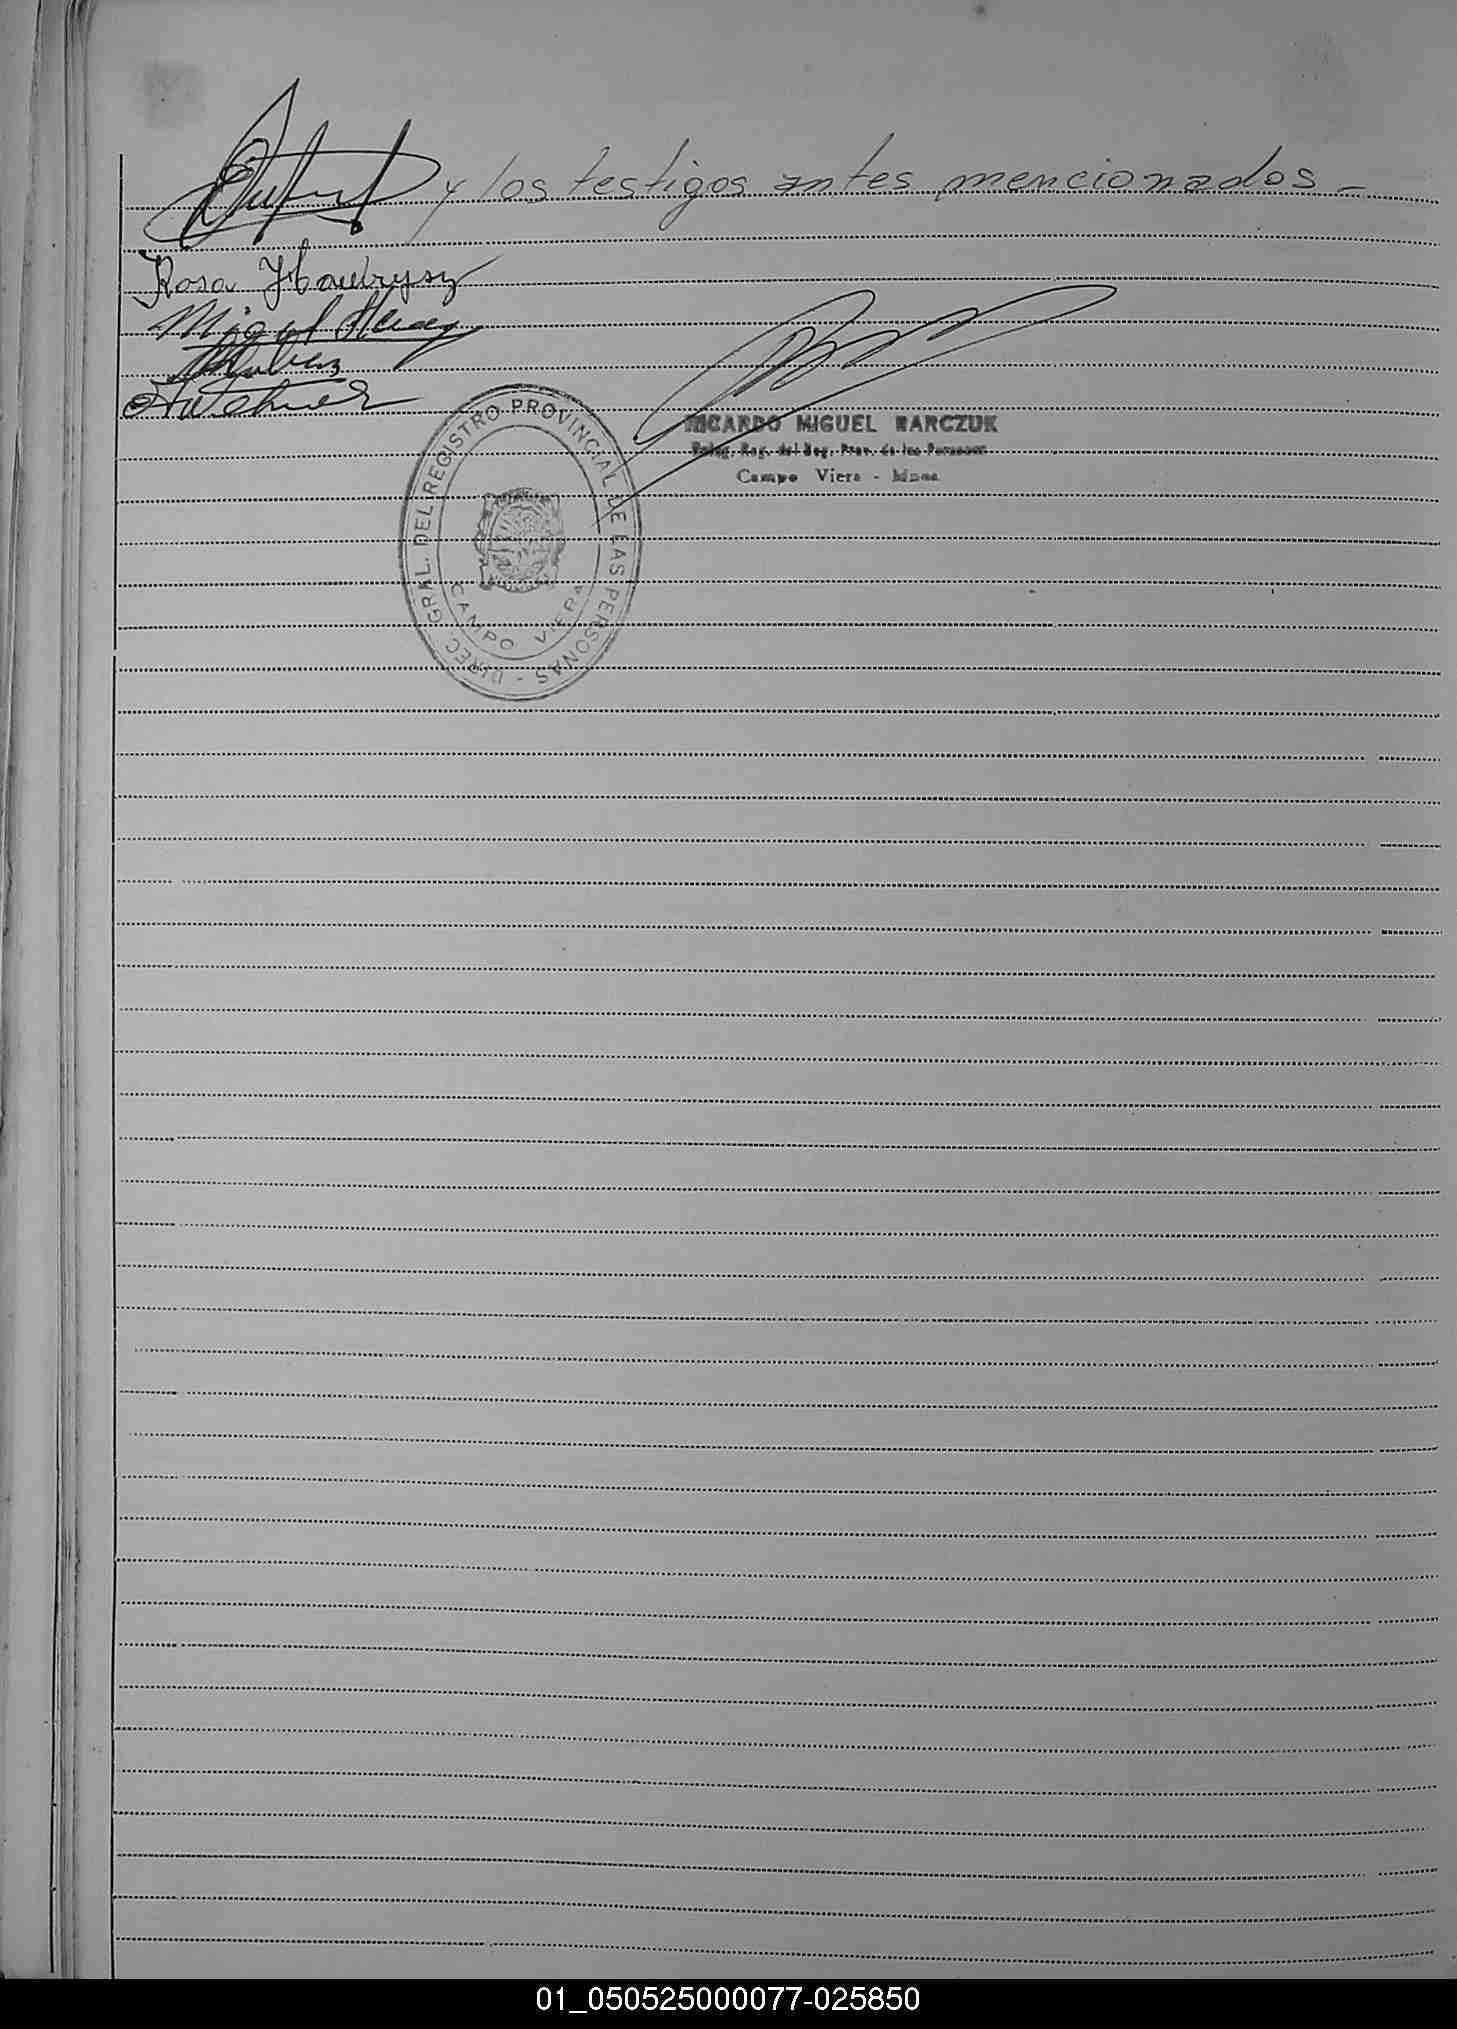 y los testigos antes mencionados -
Rosa Hawrysz
Miguel
RICARDO MIGUEL BARCZUK
Deleg. Reg. del Reg. Prov. de las Personas
Campo Viera - Mnes.
DIREC. GRAL. DEL REGISTRO PROVINCIAL DE LAS PERSONAS -
CAMPO VIERA
01_050525000077-025850